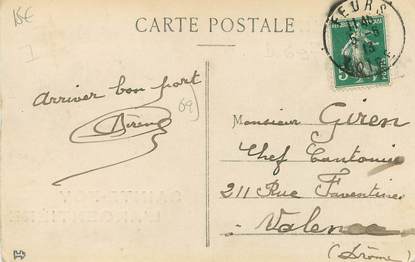 15€
CARTE POSTALE
FEURS
LOIRE
5
POSTES
Arriver bon port
Giren
69
Monsieur Giren
Chef Cantonnier
211 Rue Faventines
Valence
(Drôme)